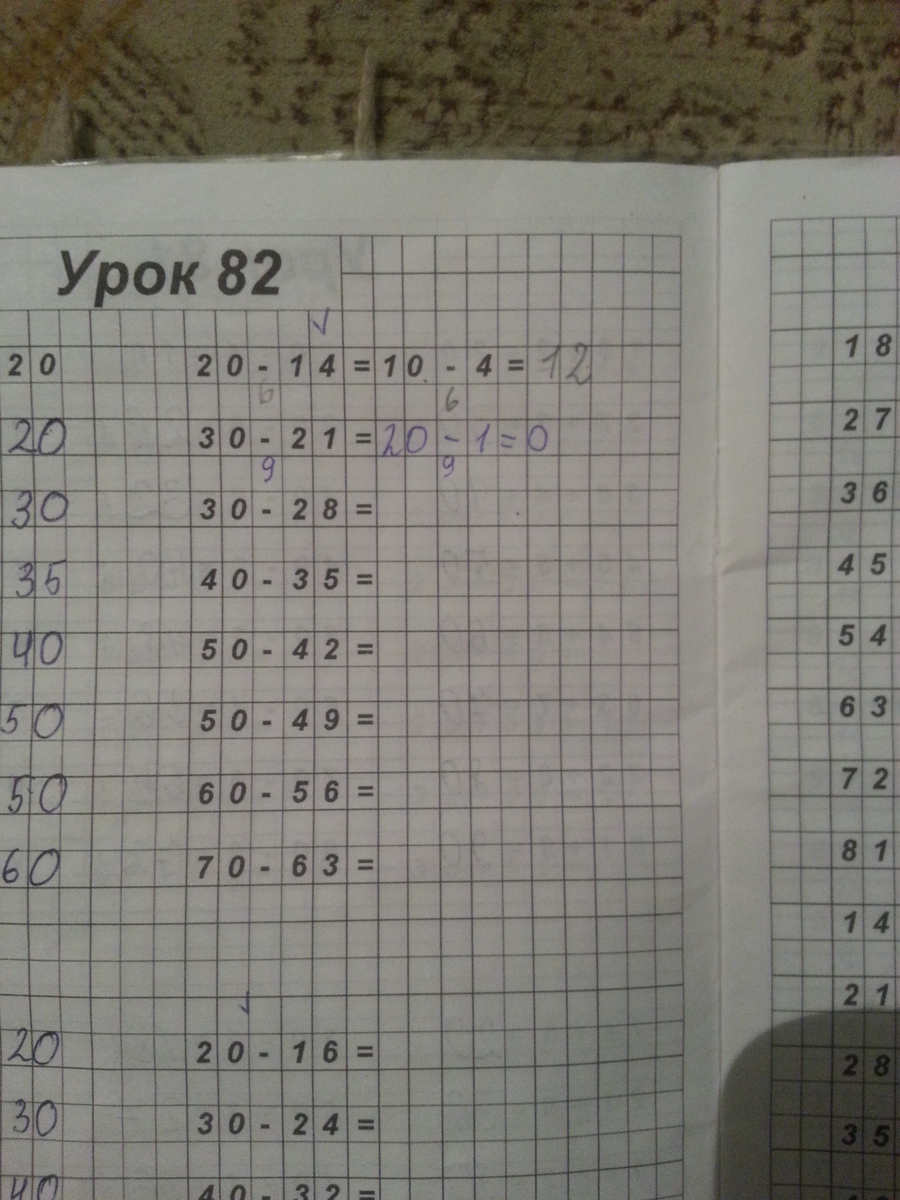 Урок 82
20 20-14=10-4=12
6 6
20 30-21=20-1=0
9 9
30 30-28=
35 40-35=
40 50-42=
50 50-49=
50 60-56=
60 70-63=
20 20-16=
30 30-24=
40 40-32=
18
27
36
45
54
63
72
81
14
21
28
35